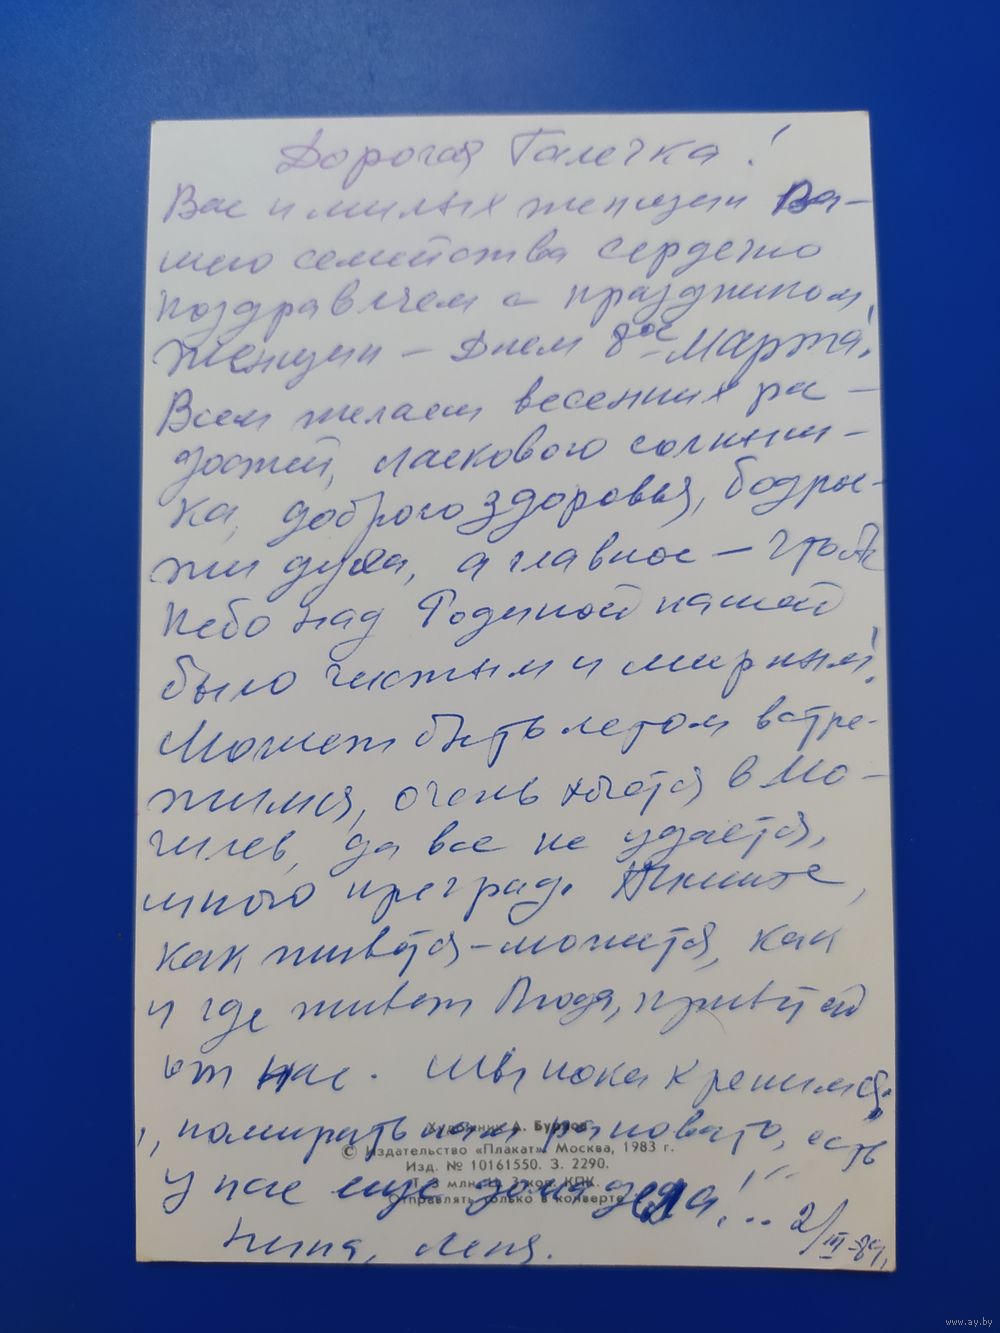 Дорогая Галечка!
Вас и милых женщин Ва-
шего семейства сердечно
поздравляем с праздником
женщин - Днем 8ое Марта!
Всем желаем весенних ра-
достей, ласкового солныш-
ка, доброго здоровья, бодрос-
ти духа, а главное - чтоб
небо над Родиной нашей
было чистым и мирным!
Может быть летом встре-
тимся, очень хочется в Мо-
гилев, да все не удается,
много преград. Пишите,
как живется-можется, как
и где живет Люда, привет ей
от нас. Мы пока крепимся,
помирать нам рановато, есть
у нас еще дома дела!...
Нина, Леня. 2/III-84г.
Художник А. Бурлов
© Издательство «Плакат» Москва, 1983 г.
Изд. № 10161550. З. 2290.
Т. 3 млн. Ц. 3 коп. КПК.
Отправлять только в конверте
www.ay.by